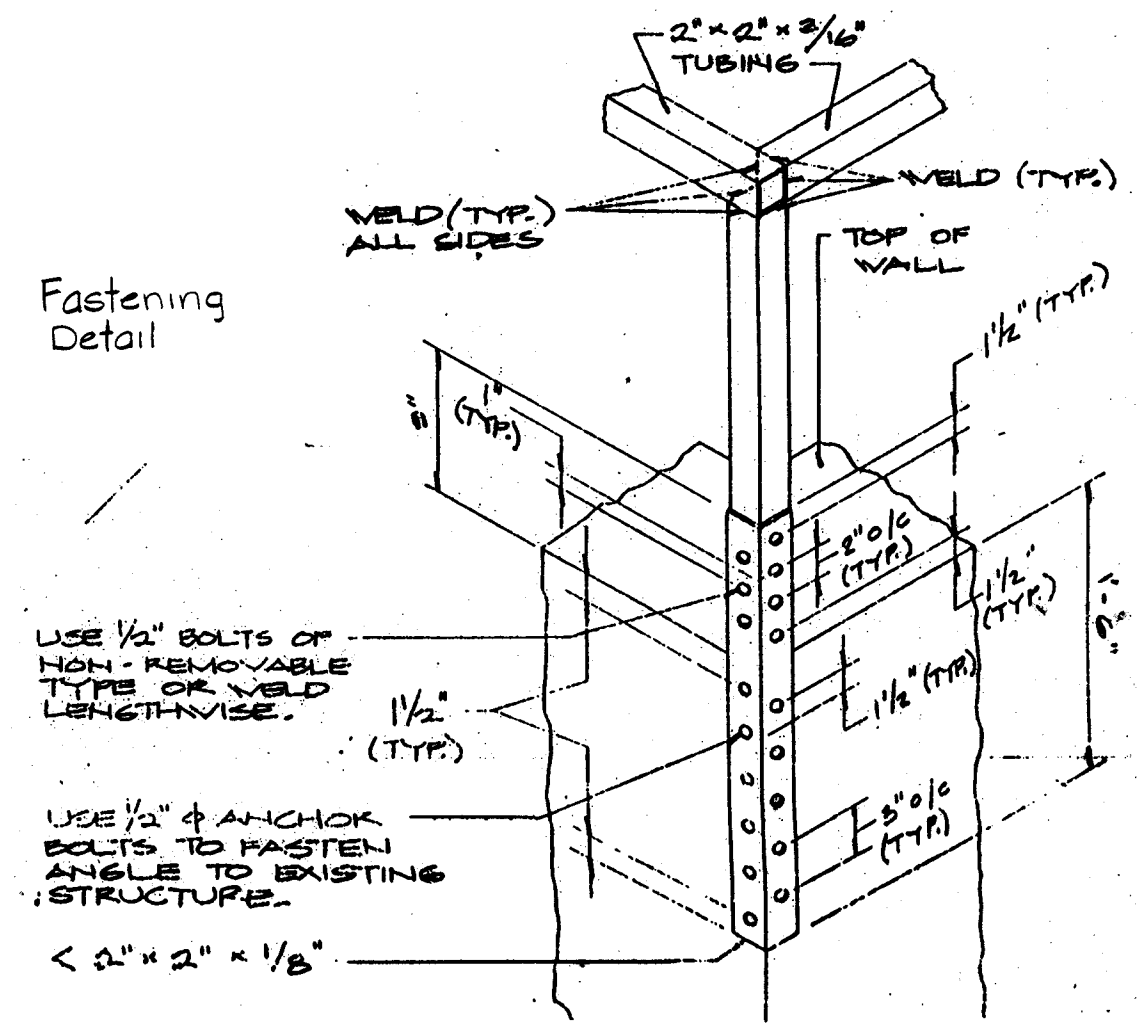 2" x 2" x 3/16"
TUBING
WELD (TYP.)
WELD (TYP.)
ALL SIDES
TOP OF
WALL
Fastening
Detail
1 1/2" (TYP.)
1"
(TYP.)
2" O/C
(TYP.)
1 1/2"
(TYP.)
USE 1/2" BOLTS OF
NON-REMOVABLE
TYPE OR WELD
LENGTHWISE.
1 1/2" (TYP.)
1 1/2"
(TYP.)
USE 1/2" ⌀ ANCHOR
BOLTS TO FASTEN
ANGLE TO EXISTING
STRUCTURE.
3" O/C
(TYP.)
< 2" x 2" x 1/8"